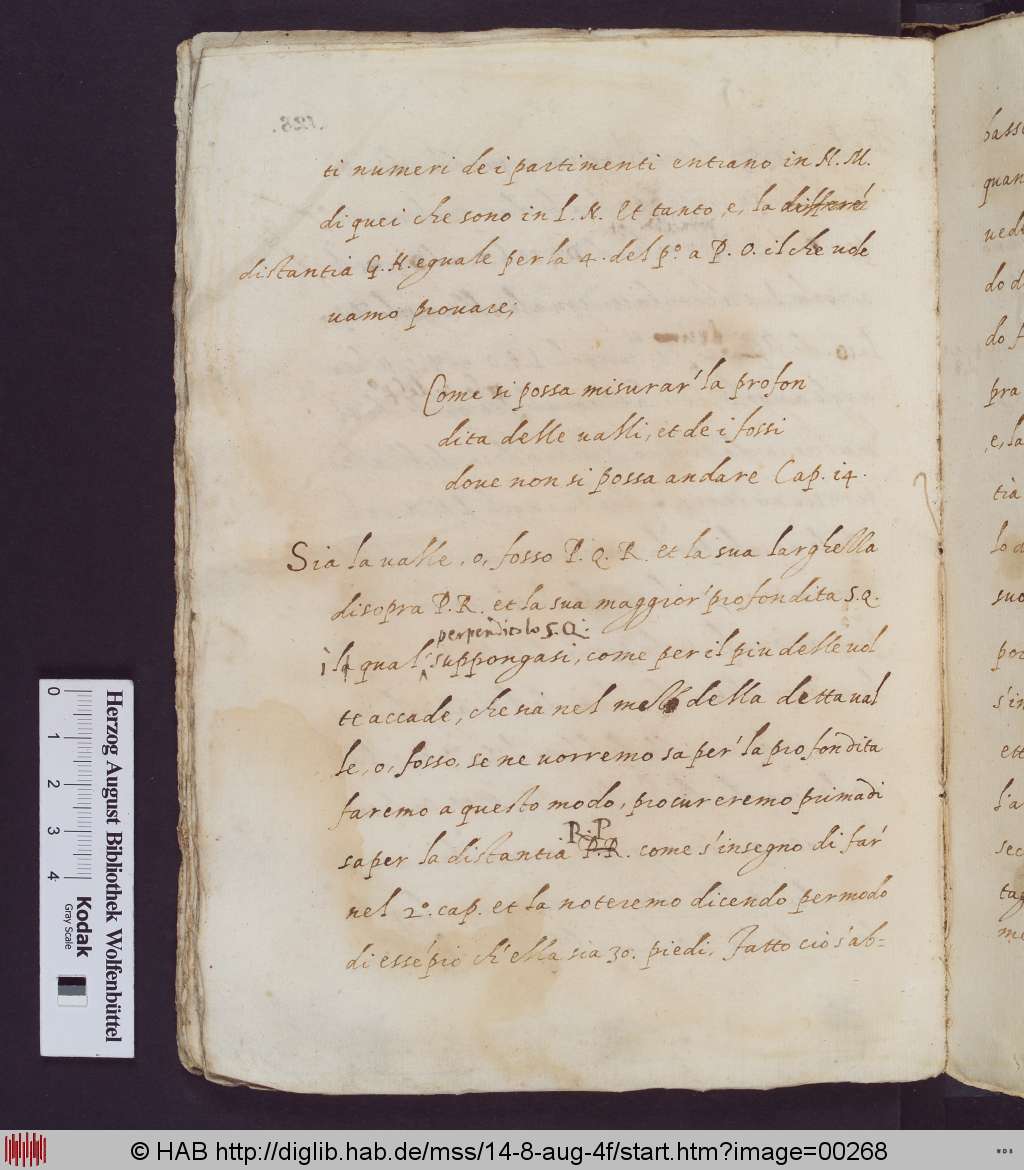 ti numeri de i partimenti entrano in N. M.
di quei che sono in L. N. Et tanto, e, la differé
distantia G. H. eguale per la 4. del pº. a P. O. il che uole
uamo prouare;
Come si possa misurar' la profon
dita delle ualli, et de i fossi
doue non si possa andare Cap. 14.
Sia la ualle, o, fosso P. Q. R. et la sua larghezza
di sopra P. R. et la sua maggior' profondita S. Q.
perpendicolo S. Q.
il qual' suppongasi, come per il piu delle uol
te accade, che sia nel mezzo della detta ual
le, o, fosso, se ne uorremo saper' la profondita
faremo a questo modo, procureremo prima di
R. P
saper la distantia P. R. come s'insegno di far'
nel 2º. cap. et la noteremo dicendo per modo
di essépio ch'ella sia 30. piedi. Fatto ciò s'ab=
bass
quan
uede
do d
do f
pra
,e, la
tia
lo d
suo
por
s'in
ett
l'a
sec
tag
me
0
1
2
3
4
Kodak
Gray Scale
Herzog August Bibliothek Wolfenbüttel
© HAB http://diglib.hab.de/mss/14-8-aug-4f/start.htm?image=00268